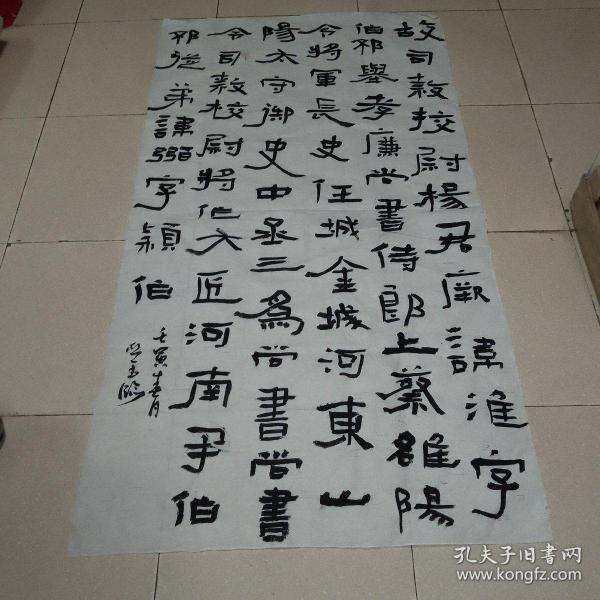 故司隸校尉楊君厥諱淮字
伯邳舉孝廉尚書侍郎上蔡雒陽
令將軍長史任城金城河東山
陽太守御史中丞三為尚書尚書
令司隸校尉將作大匠河南尹伯
邳從弟諱弼字穎伯
壬寅春月
孔夫子旧书网
www.kongfz.com